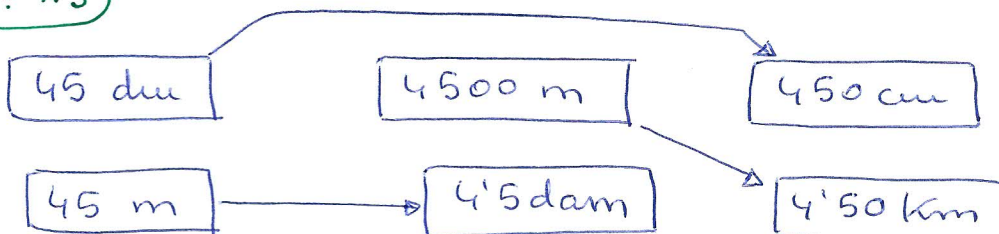 45 dm 4500 m 450 cm
45 m 4'5 dam 4'50 km